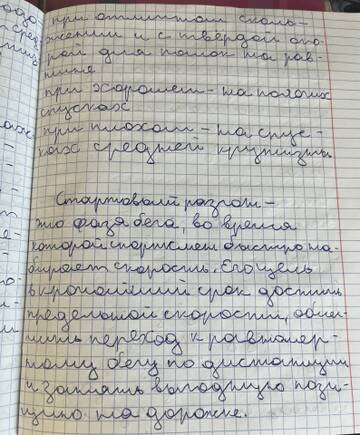 при отличном сколь-
жении и с твердой опо-
рой для палок на рав-
нине
при хорошем - на пологих
спусках
при плохом - на спус-
ках средней крутизны
Стартовый разгон -
это фаза бега, во время
которой спортсмен быстро на-
бирает скорость. Его цель
в кротчайший срок достичь
предельной скорости, обеспе-
чить переход к равномер-
ному бегу по дистанции
и занять выгодную пози-
цию на дорожке.